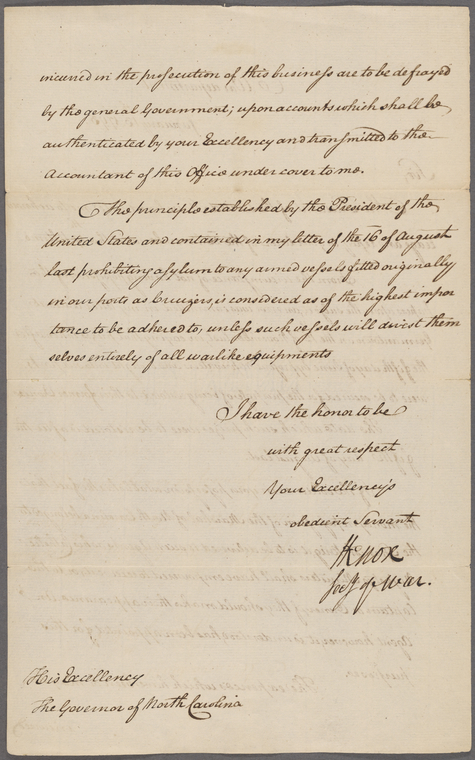 incurred in the prosecution of this business are to be defrayed
by the general Government; upon accounts which shall be
authenticated by your Excellency and transmitted to the
Accountant of this Office under cover to me.
The principle established by the President of the
United States and contained in my letter of the 16 of August
last prohibiting asylum to any armed vessels fitted originally
in our ports as Cruizers, is considered as of the highest impor
tance to be adhered to, unless such vessels will divest them
selves entirely of all warlike equipments
I have the honor to be
with great respect
Your Excellency's
obedient Servant
HKnox
Secy of War.
His Excellency
The Governor of North Carolina